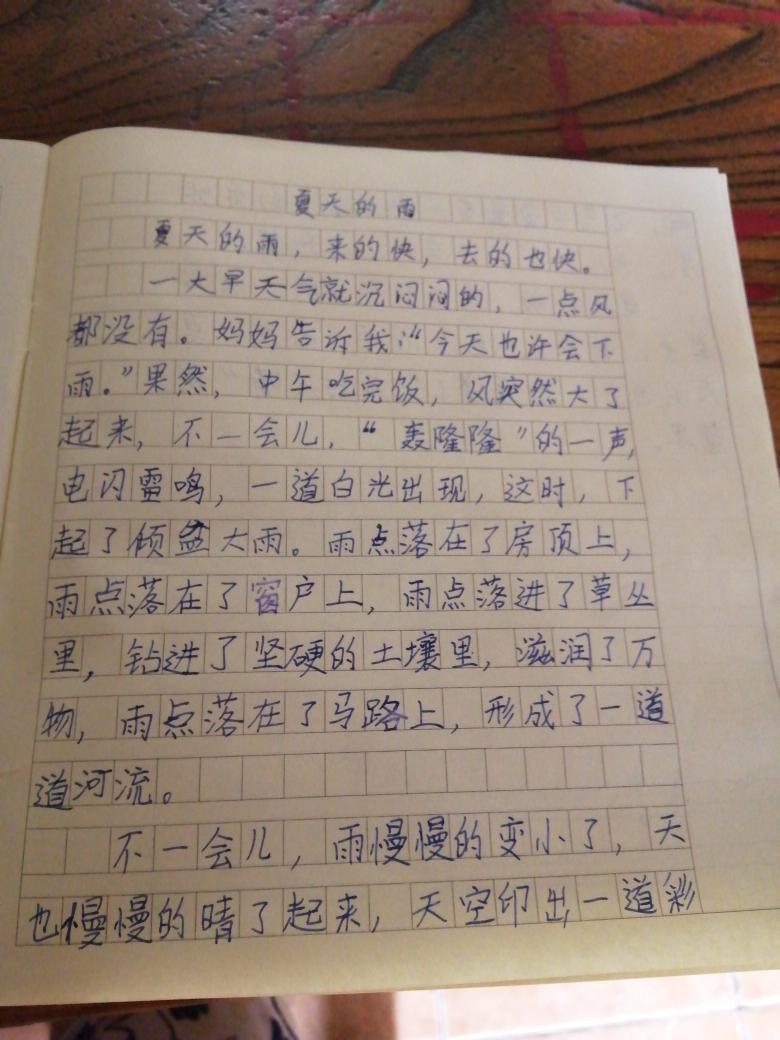 夏天的雨
夏天的雨，来的快，去的也快。
一大早天气就沉闷闷的，一点风
都没有。妈妈告诉我：“今天也许会下
雨。”果然，中午吃完饭，风突然大了
起来，不一会儿，“轰隆隆”的一声，
电闪雷鸣，一道白光出现，这时，下
起了倾盆大雨。雨点落在了房顶上，
雨点落在了窗户上，雨点落进了草丛
里，钻进了坚硬的土壤里，滋润了万
物，雨点落在了马路上，形成了一道
道河流。
不一会儿，雨慢慢的变小了，天
也慢慢的晴了起来，天空印出一道彩